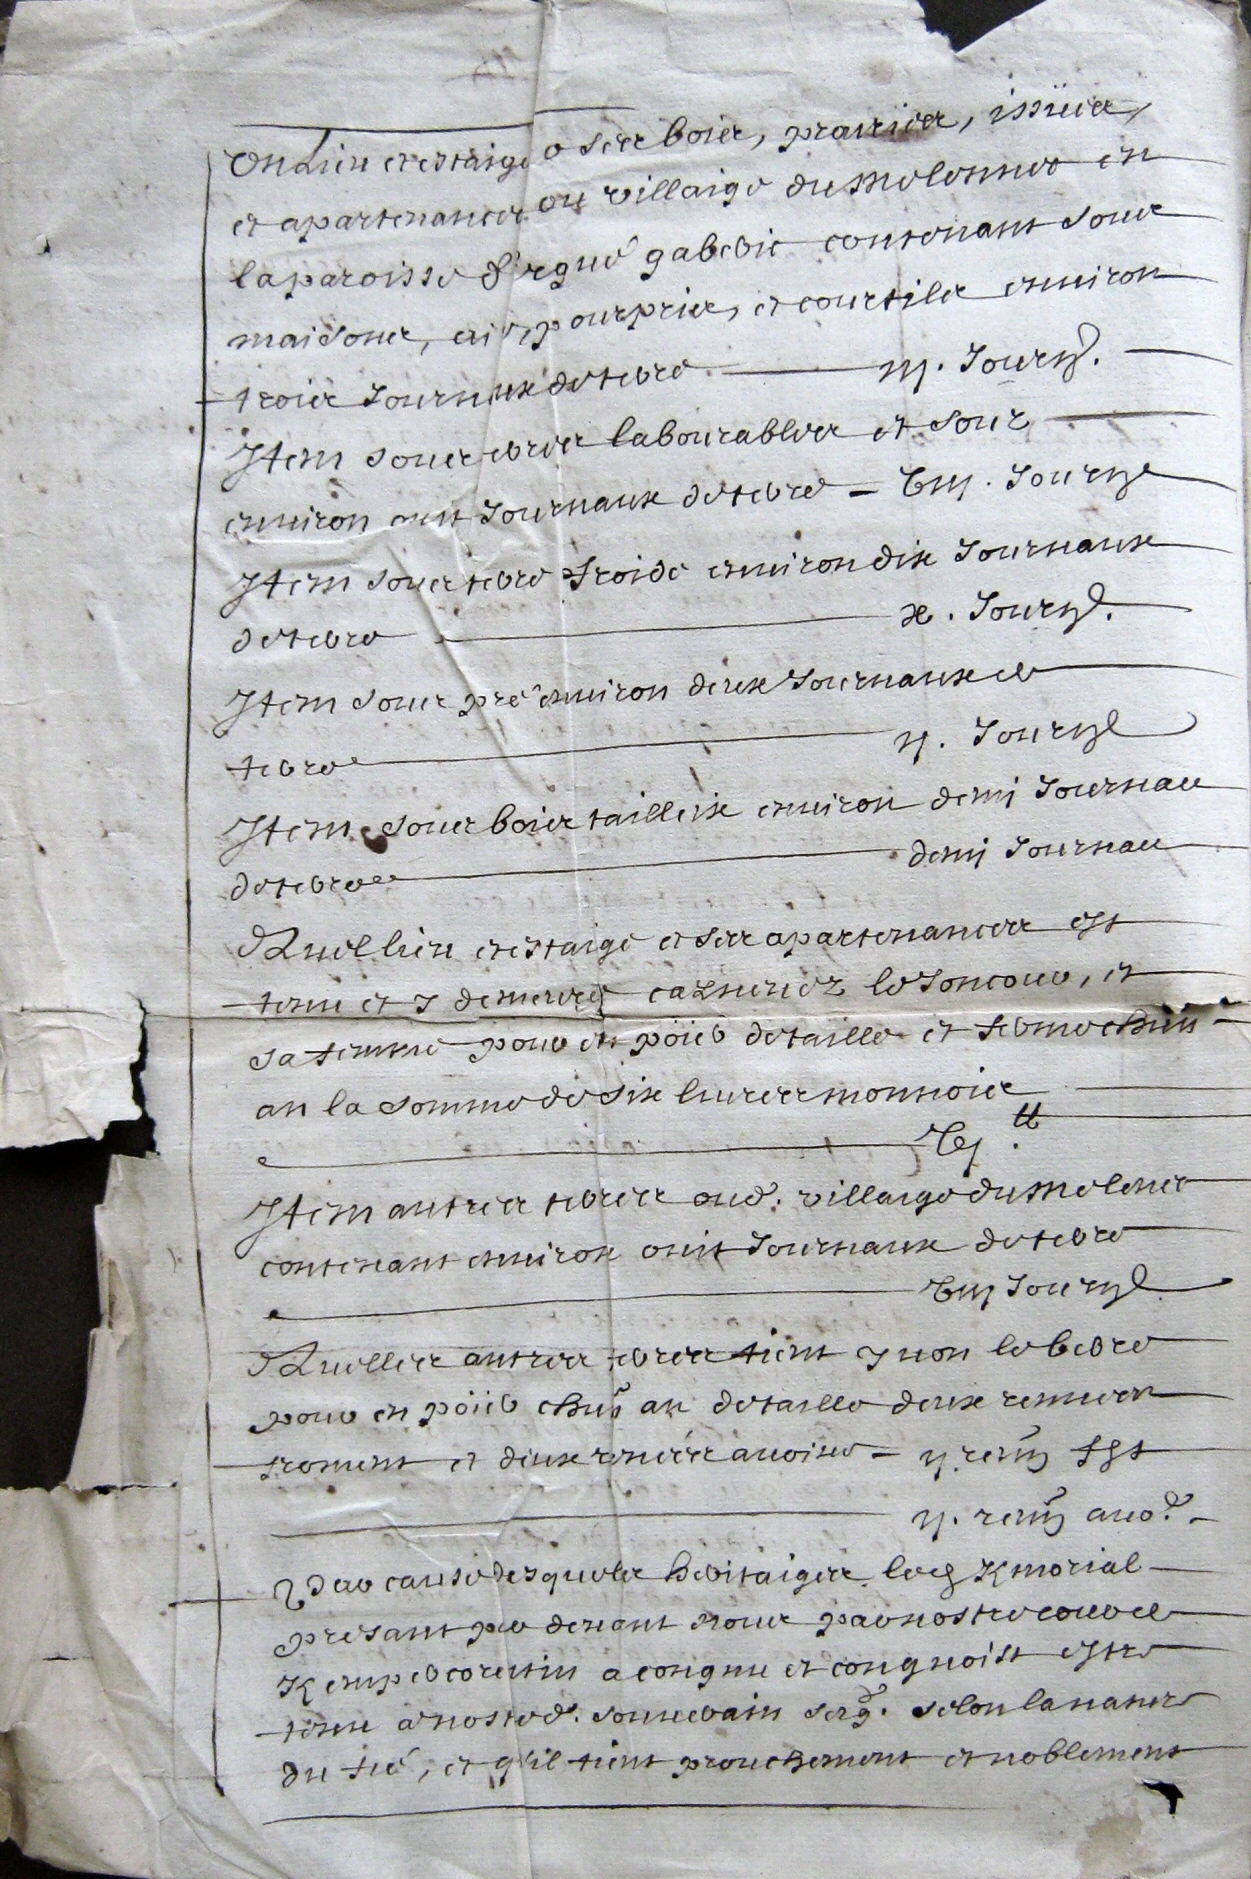 Un Lieu et estaige o ses boies, prairies, issües,
et apartenances ou villaige du Molonner en
la paroisse d'ergué gabéric contenant soue
maisones, aire, pourpries, et courtiles environ
trois journaux de terre iij. journ.
Item soues terres labourables et sous
environ ouit journaux de terre - viij. journ.
Item soues terre froide environ dix journaux
de terre x. journ.
Item soues pré environ deux journaux de
terre ij. journ.
Item soues boies tailleix environ demj journau
de terre demj journau
Quel lieu et estaige et ses apartenances est
tenu et y demeure cazneuez le Joncour, et
sa femme pour en poier de taille et ferme chūn
an la somme de six livres monnoie
vj ₶.
Item autres terres oud. villaige du Molener
contenant environ ouit journaux de terre
viij journ.
Quelles autres terres tient yuon le berre
pour en poier chūn an de taille deux rennees
froment et deux rennées avoine - ij. renn fgt
ij. renn avo.
A cause desquels heritaiges led Kmorial
present par devant nous par nostre cour de
Kempercorentin a congnu et congnoist estre
tenu à nostred. souverain seigr. selon la nature
du fié, et q'il tient prouchement et noblement